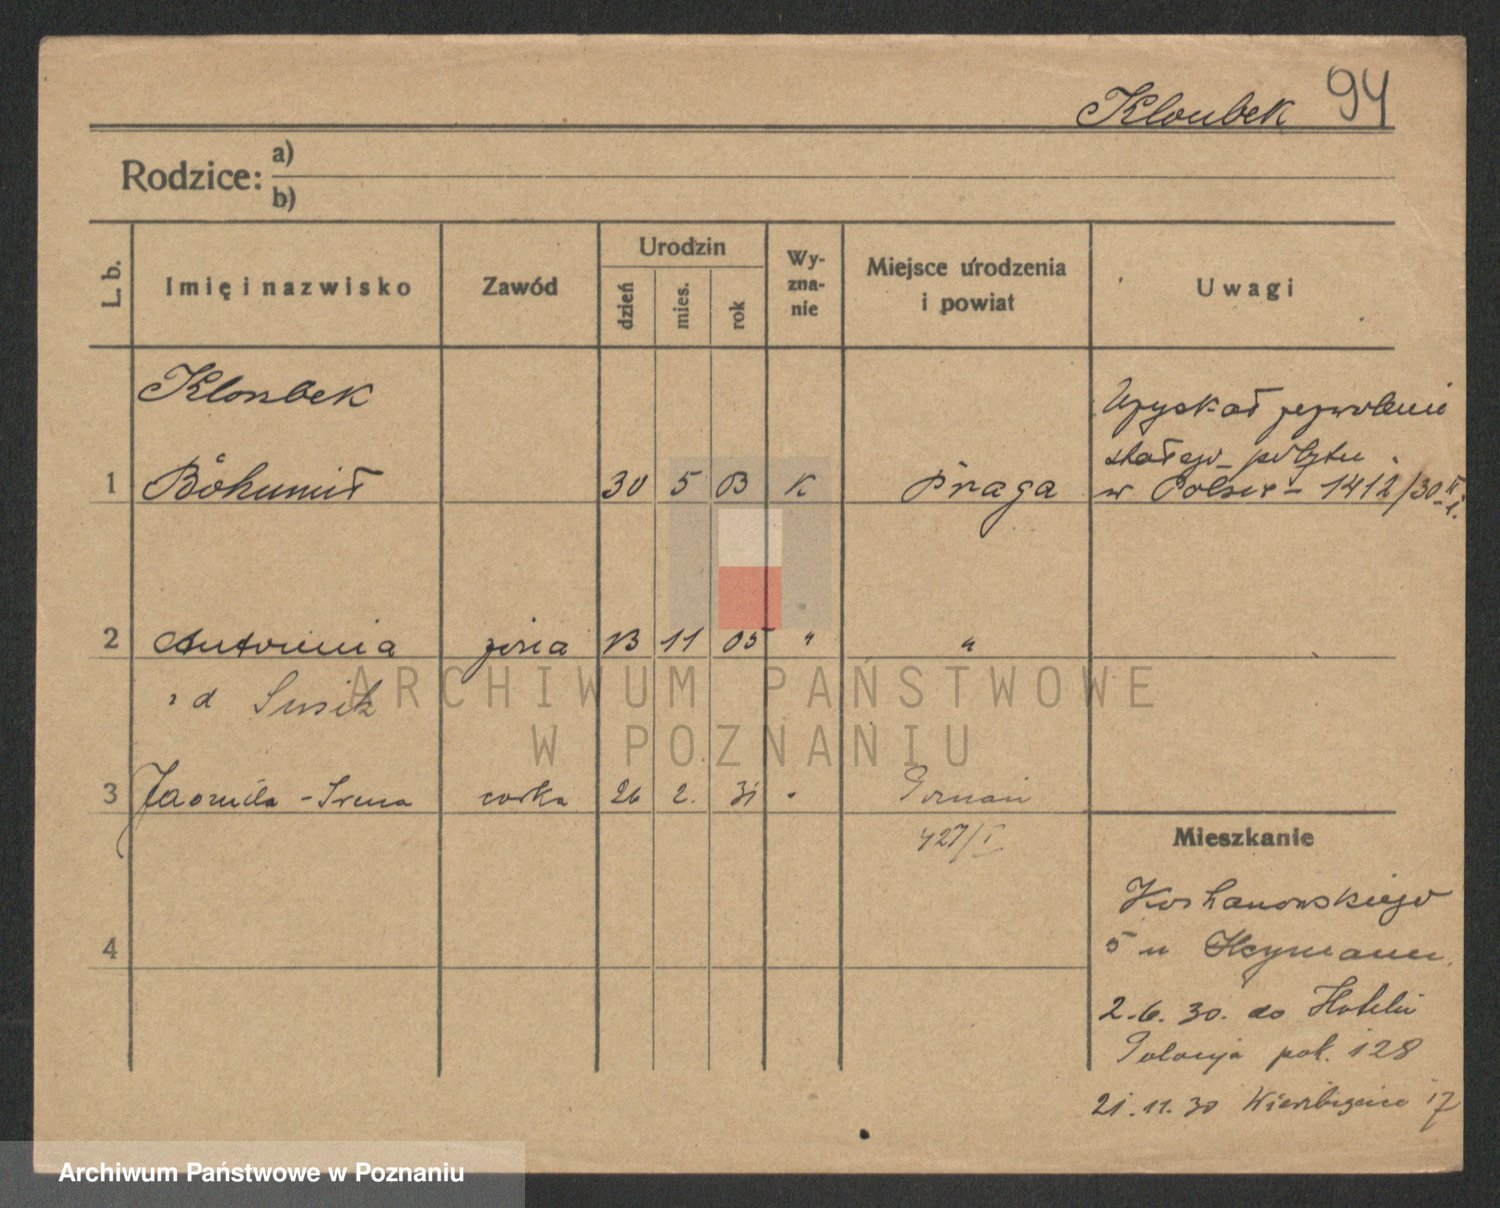 Kloubek 94
Rodzice: a)
b)
L. b.
Imię i nazwisko
Zawód
Urodzin
dzień
mies.
rok
Wy-
zna-
nie
Miejsce urodzenia
i powiat
Uwagi
Kloubek
Uzyskał zezwolenie
stałego pobytu
1 Bohumił 30 5 K Praga w Polsce - 1412/30
2 Antonina żona 11 05 " "
z d
ARCHIWUM PAŃSTWOWE
W POZNANIU
3 Jaromila - Irena corka 26 2. 31 " Poznań
427/I
Mieszkanie
Kochanowskiego
4
5 u Heymann
2.6.30. do Hotelu
Polonja pok. 128
21.11.30 Wierzbięcice 17
Archiwum Państwowe w Poznaniu